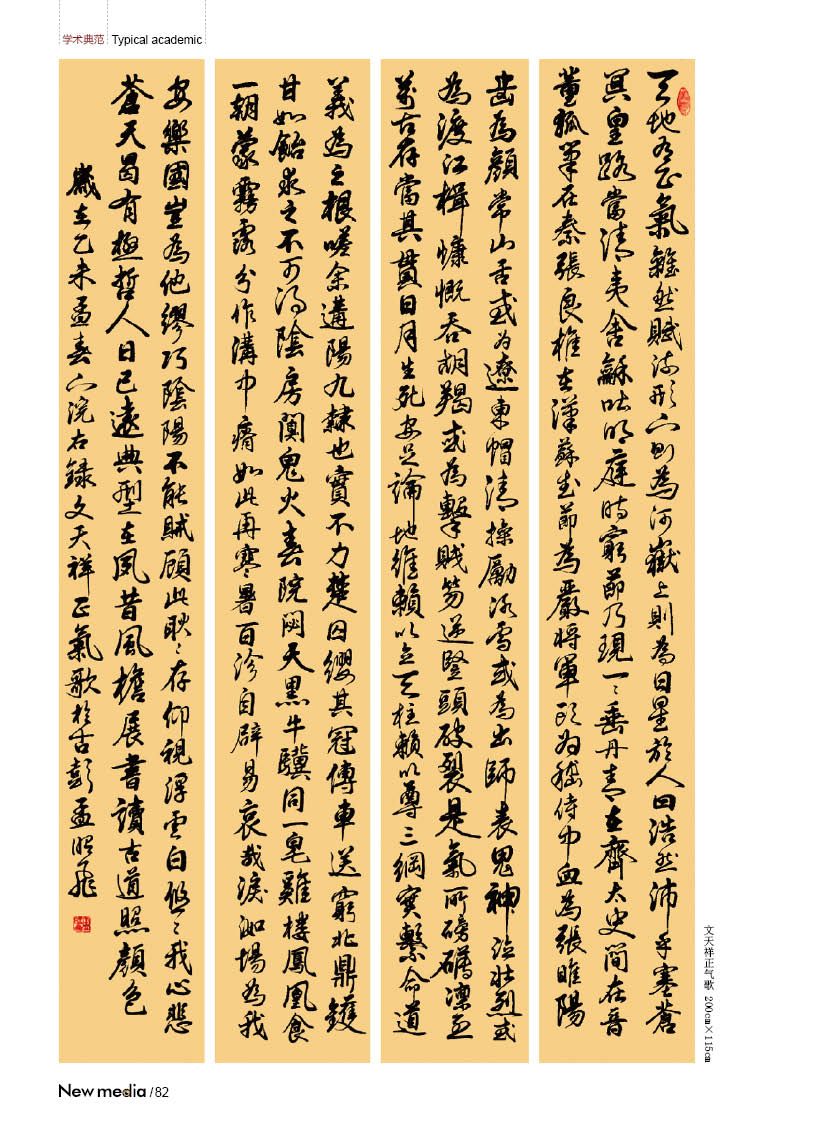 学术典范 Typical academic
天地有正氣雜然賦流形下則為河嶽上則為日星於人曰浩然沛乎塞蒼
冥皇路當清夷含龢吐明庭時窮節乃現一〻垂丹青在齊太史簡在晉
董狐筆在秦張良椎在漢蘇武節為嚴將軍頭為嵇侍中血為張睢陽
齒為顏常山舌或為遼東帽清操厲冰雪或為出師表鬼神泣壯烈或
為渡江楫慷慨吞胡羯或為擊賊笏逆豎頭破裂是氣所磅礴凜烈
萬古存當其貫日月生死安足論地維賴以立天柱賴以尊三綱實繫命道
義為之根嗟余遘陽九隸也實不力楚囚纓其冠傳車送窮北鼎鑊
甘如飴求之不可得陰房闃鬼火春院閟天黑牛驥同一皂雞棲鳳凰食
一朝蒙霧露分作溝中瘠如此再寒暑百沴自辟易哀哉洳場為我
安樂國豈為他繆巧陰陽不能賊顧此耿〻存仰視浮雲白悠〻我心悲
蒼天曷有極哲人日已遠典型在夙昔風檐展書讀古道照顏色
歲在乙未孟春下浣右錄文天祥正氣歌於古彭孟昭飛
文天祥正气歌 200cm×115cm
New media /82